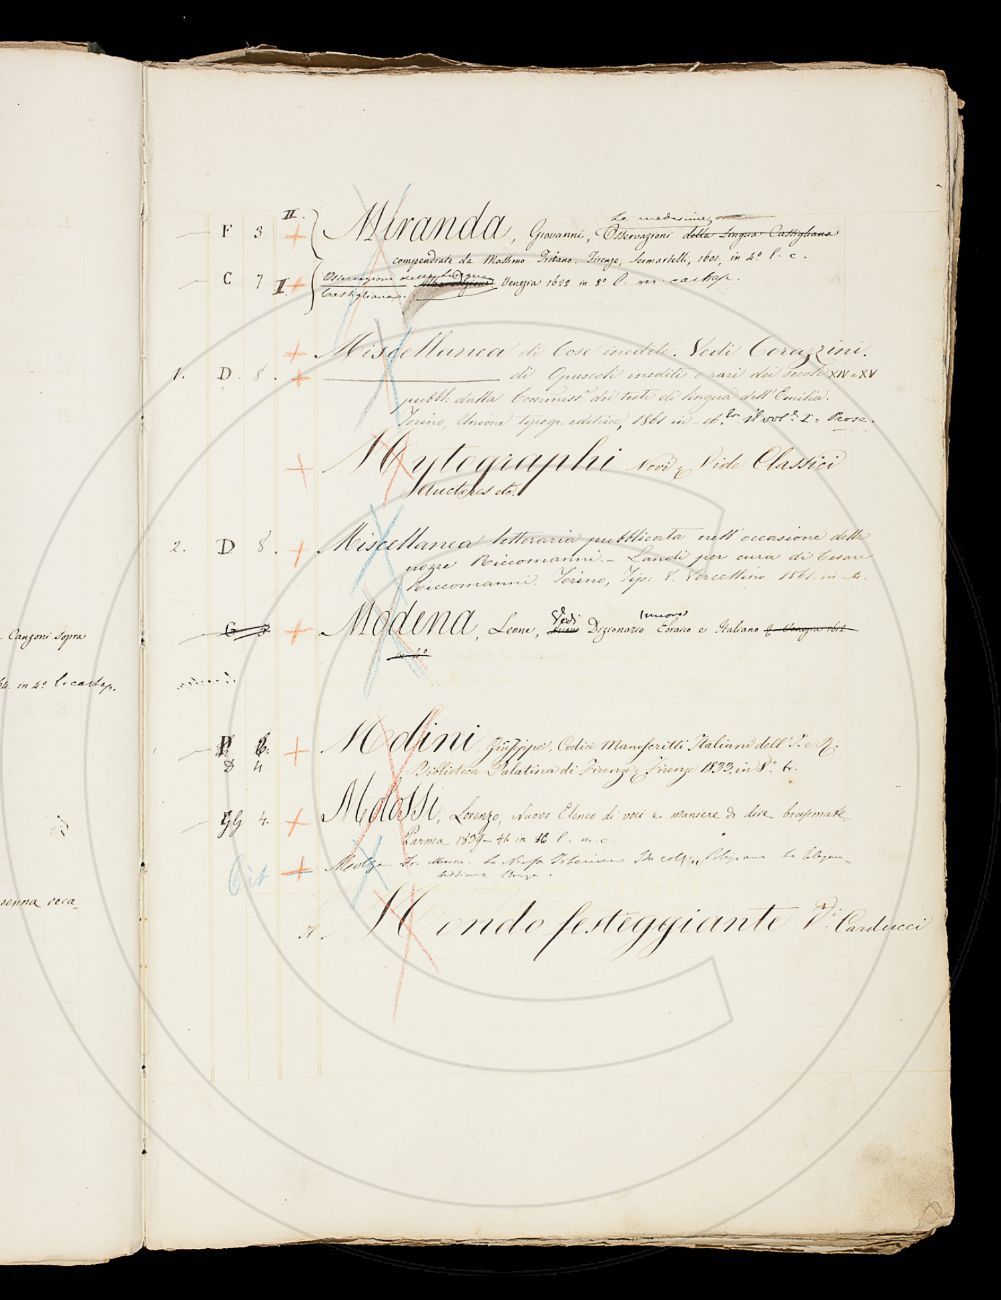 II.
F 3 + Miranda, Giovanni, Osservazioni della lingua Castigliana
Le medesime,
compendiate da Mattino Tristano. Firenze, Sermartelli, 1601, in 4° l. c.
C 7 I + Osservazioni della Lingua
Castigliana. Altra edizione Venezia 1622. in 8° l. m. cartap.
+ Miscellanea di Cose inedite. Vedi Corazzini.
1. D. 8. + di Opuscoli inediti o rari dei secoli XIV e XV
pubbl. dalla Commiss. dei testi di lingua dell'Emilia.
Torino, Unione tipogr. editrice, 1861 in 16° vol. I. Prose.
+ Mytographi Novi Vide Classici
Auctores etc.
2. D 8. + Miscellanea letteraria pubblicata nell'occasione delle
nozze Riccomanni - Landi per cura di Cesare
Riccomanni. Torino, Tip: V. Vercellino 1861. in
G 8 + Modena, Leone, Vedi Nuovo Dizionario Ebraico e Italiano Venezia 1612
in 4°
+ Molini Giuseppe, Codici Manoscritti Italiani dell'I. e R.
Biblioteca Palatina di Firenze Firenze 1833. in 8°
D 4
4. + Molossi, Lorenzo, Nuovo Elenco di voci e maniere di dire biasimate
Parma 1839-41 in 16 l. m. c.
Cit + Molza La Ninfa Tiberina
Mondo festeggiante Vi: Carducci
Canzoni sopra
in 4° l. cartap.